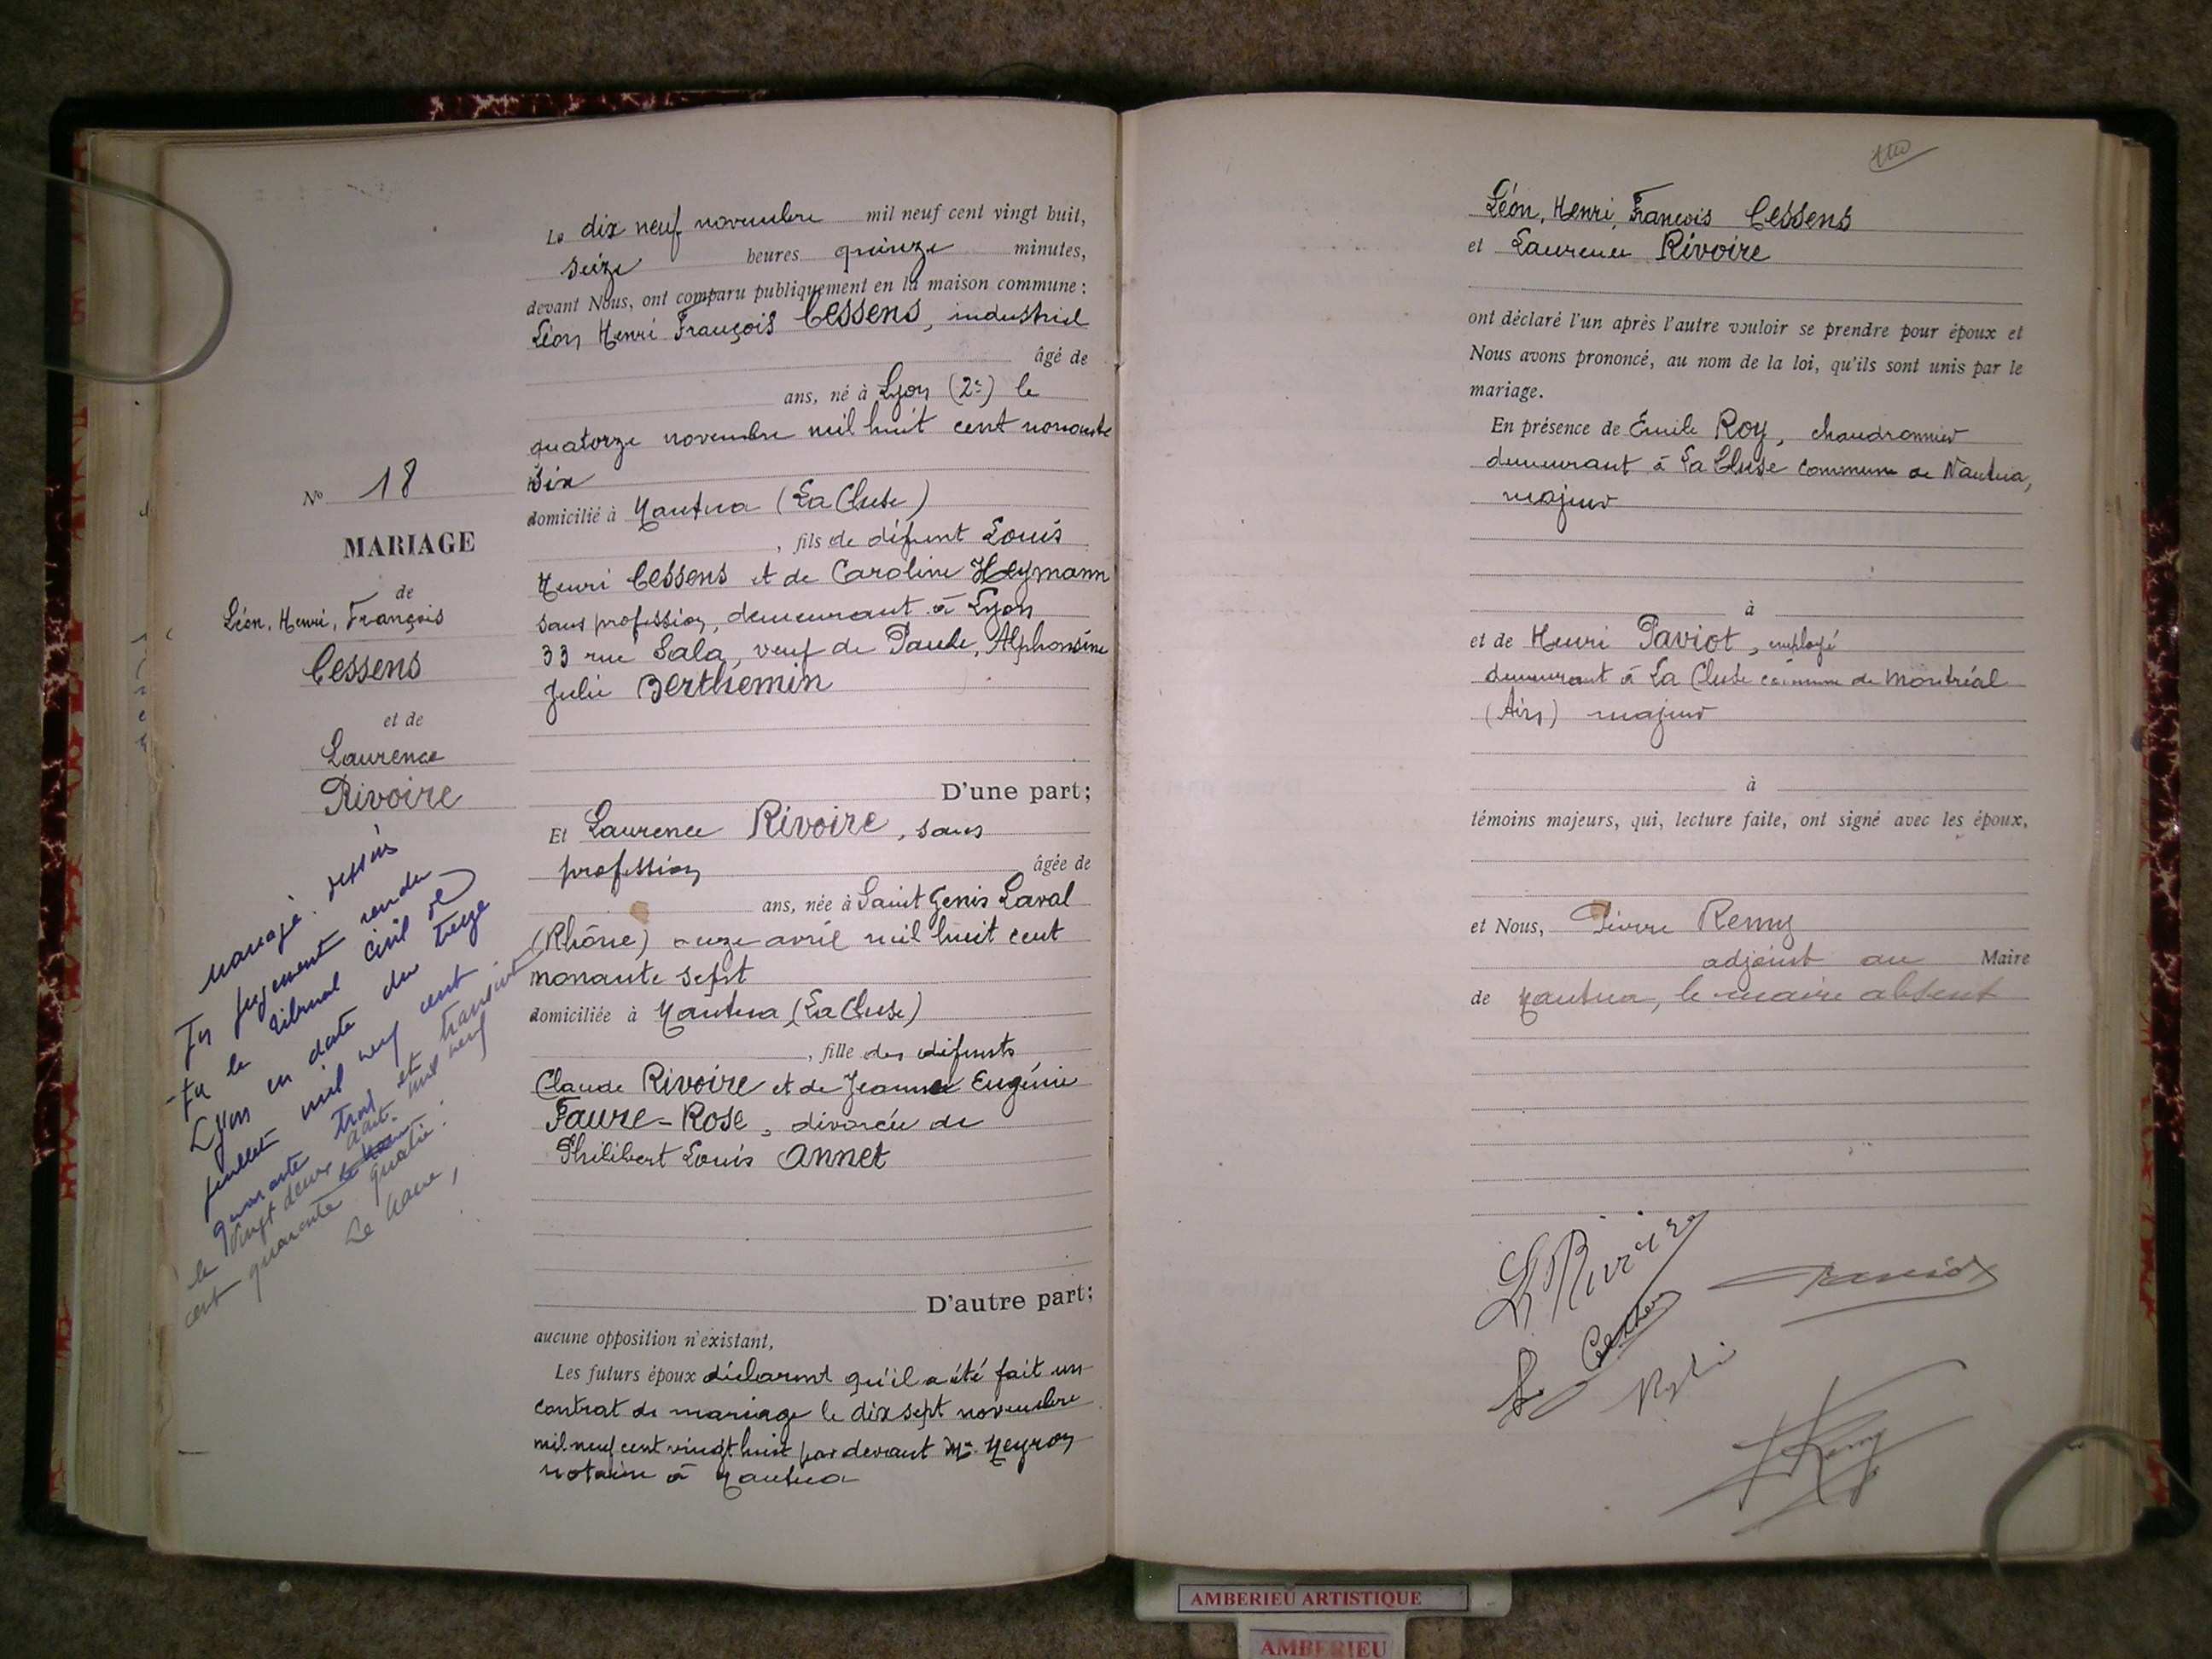 No 18
MARIAGE
de
Léon, Henri, François
Cessens
et de
Laurence
Rivoire
mariage dissous
jugement rendu
le tribunal civil de
Lyon en date du treize
juillet mil neuf cent
quarante trois et transcrit
le vingt deux août mil neuf
cent quarante quatre.
Le Maire,
Le dix neuf novembre mil neuf cent vingt huit,
seize heures quinze minutes,
devant Nous, ont comparu publiquement en la maison commune :
Léon Henri François Cessens, industriel
âgé de
ans, né à Lyon (2e) le
quatorze novembre mil huit cent nonante
six
domicilié à Nantua (La Cluse)
, fils de défunt Louis
Henri Cessens et de Caroline Heymann
sans profession, demeurant à Lyon
33 rue Sala, veuf de Paule, Alphonsine
Julie Berthemin
D'une part;
Et Laurence Rivoire, sans
profession âgée de
ans, née à Saint Genis Laval
(Rhône) onze avril mil huit cent
nonante sept
domiciliée à Nantua (La Cluse)
, fille des défunts
Claude Rivoire et de Jeanne Eugénie
Faure-Rose, divorcée de
Philibert Louis Annet
D'autre part;
aucune opposition n'existant,
Les futurs époux déclarent qu'il a été fait un
contrat de mariage le dix sept novembre
mil neuf cent vingt huit par devant Me Neyron
notaire à Nantua
Léon, Henri, François Cessens
et Laurence Rivoire
ont déclaré l'un après l'autre vouloir se prendre pour époux et
Nous avons prononcé, au nom de la loi, qu'ils sont unis par le
mariage.
En présence de Émile Roy, chaudronnier
demeurant à La Cluse commune de Nantua,
majeur
à
et de Henri Paviot, employé
demeurant à La Cluse commune de Montréal
(Ain) majeur
à
témoins majeurs, qui, lecture faite, ont signé avec les époux,
et Nous, Pierre Remy
adjoint au Maire
de Nantua, le maire absent
L. Rivoire
Paviot
L. Cessens
Remy
AMBERIEU ARTISTIQUE
AMBERIEU